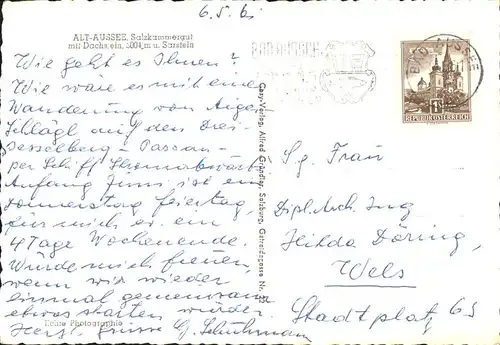 6.5.6
ALT-AUSSEE, Salzkammergut
mit Dachstein, 3004 m u. Sarstein
Wie geht es Ihnen?
Wie wäre es mit einer
Wanderung von Aigen
Schlägl auf den Drei-
sesselberg - Passau -
per Schiff Stromabwärts
Anfang Juni ist ein
Donnerstag Feiertag,
für mich ev. ein
4 Tage Wochenende.
Würde mich freuen,
wenn wir wieder
einmal gemeinsam
etwas starten würden.
Herzl. Grüsse
Echte Photographie
Cosy-Verlag, Alfred Gründler, Salzburg, Getreidegasse Nr. 22
BAD AUSSEE
REPUBLIK ÖSTERREICH
Sg. Frau
Dipl. Arch. Ing
Hilda Döring,
Wels
Stadtplatz 63